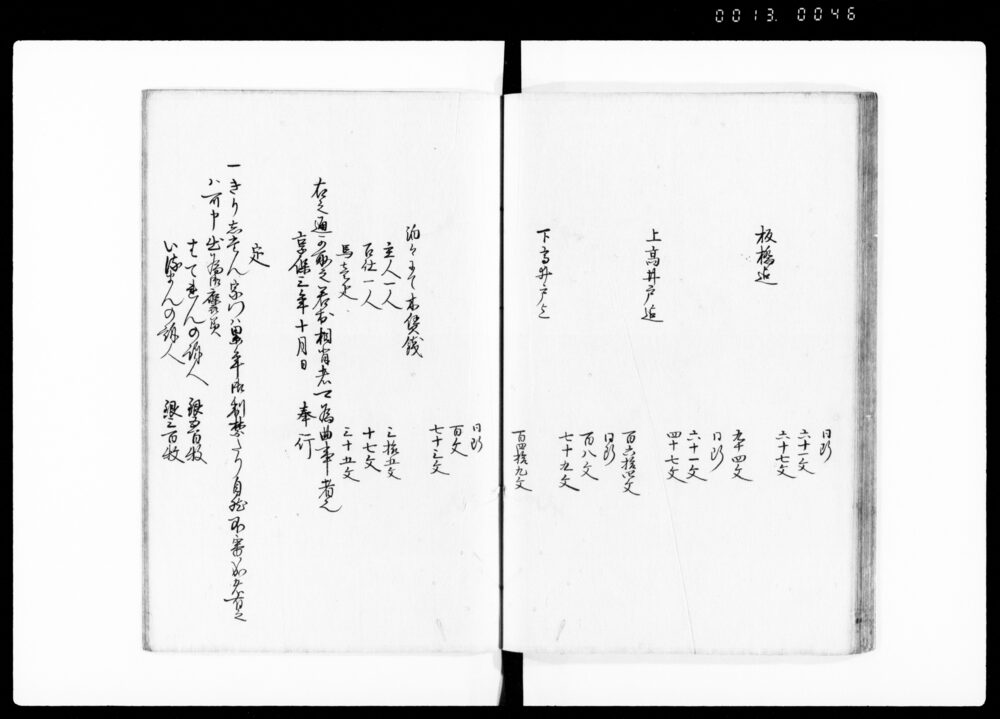 0013.0046
同断
六十一文
六十七文
板橋迄
九十四文
同断
六十一文
四十七文
上高井戸迄
百六拾四文
同断
百八文
七十九文
下高井戸迄
百四拾九文
同断
百文
七十三文
泊りにて木賃銭
主人一人 三拾五文
召仕一人 十七文
馬壱疋 三十五文
右之通可取之若於相背者可為曲事者也
享保三年十月日 奉行
定
一きりしたん宗門ハ累年御制禁たり自然不審成者有之
ハ可申出御褒美
はてれんの訴人 銀五百枚
いるまんの訴人 銀三百枚